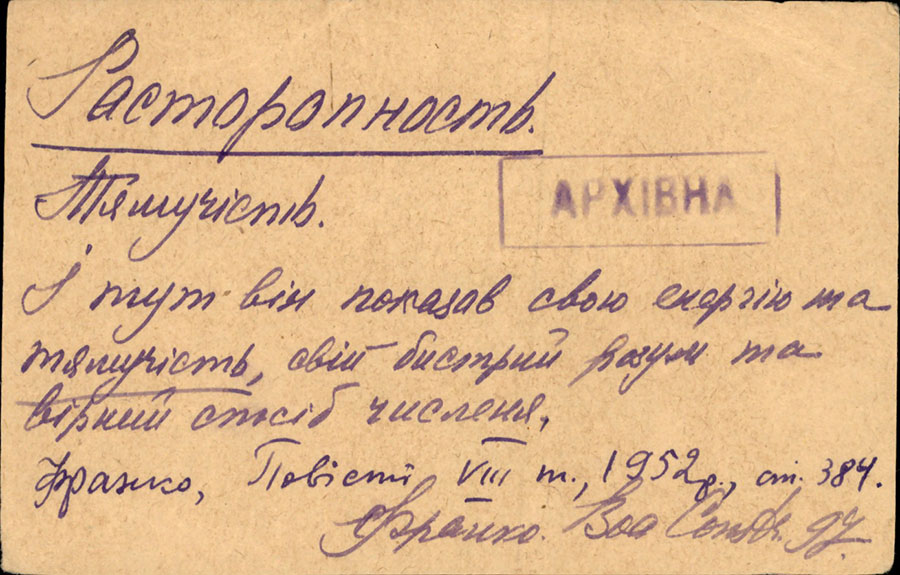 Расторопность.
Тямучість.
АРХІВНА
І тут він показав свою енергію та
тямучість, свій бистрий розум та
вірний спосіб численя.
Франко, Повісті VIII т., 1952 р., ст. 384.
Франко. Boa Constr. 97.